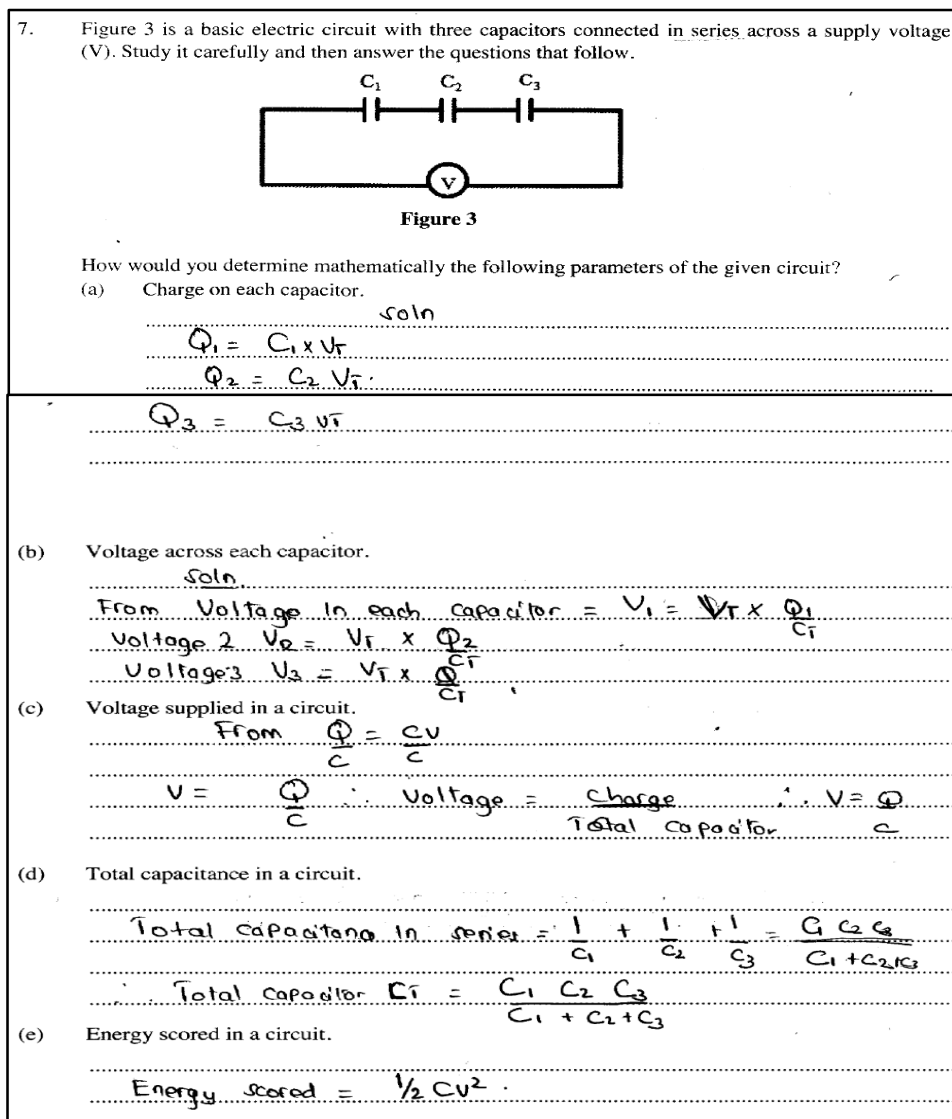 7. Figure 3 is a basic electric circuit with three capacitors connected in series across a supply voltage
(V). Study it carefully and then answer the questions that follow.
C₁ C₂ C₃
V
Figure 3
How would you determine mathematically the following parameters of the given circuit?
(a) Charge on each capacitor.
soln
Q₁ = C₁ x VT
Q₂ = C₂ VT.
Q₃ = C₃ VT
(b) Voltage across each capacitor.
soln
From Voltage in each capacitor = V₁ = VT x Q₁/CT
Voltage 2 V₂ = VT x Q₂/CT
Voltage 3 V₃ = VT x Q/CT
(c) Voltage supplied in a circuit.
From Q/C = CV/C
V = Q/C ∴ Voltage = Charge/Total capacitor ∴ V = Q/C
(d) Total capacitance in a circuit.
Total capacitanc in series = 1/C₁ + 1/C₂ + 1/C₃ = C₁ C₂ C₃/C₁ + C₂ + C₃
∴ Total capacitor CT = C₁ C₂ C₃/C₁ + C₂ + C₃
(e) Energy scored in a circuit.
Energy scored = 1/2 CV².